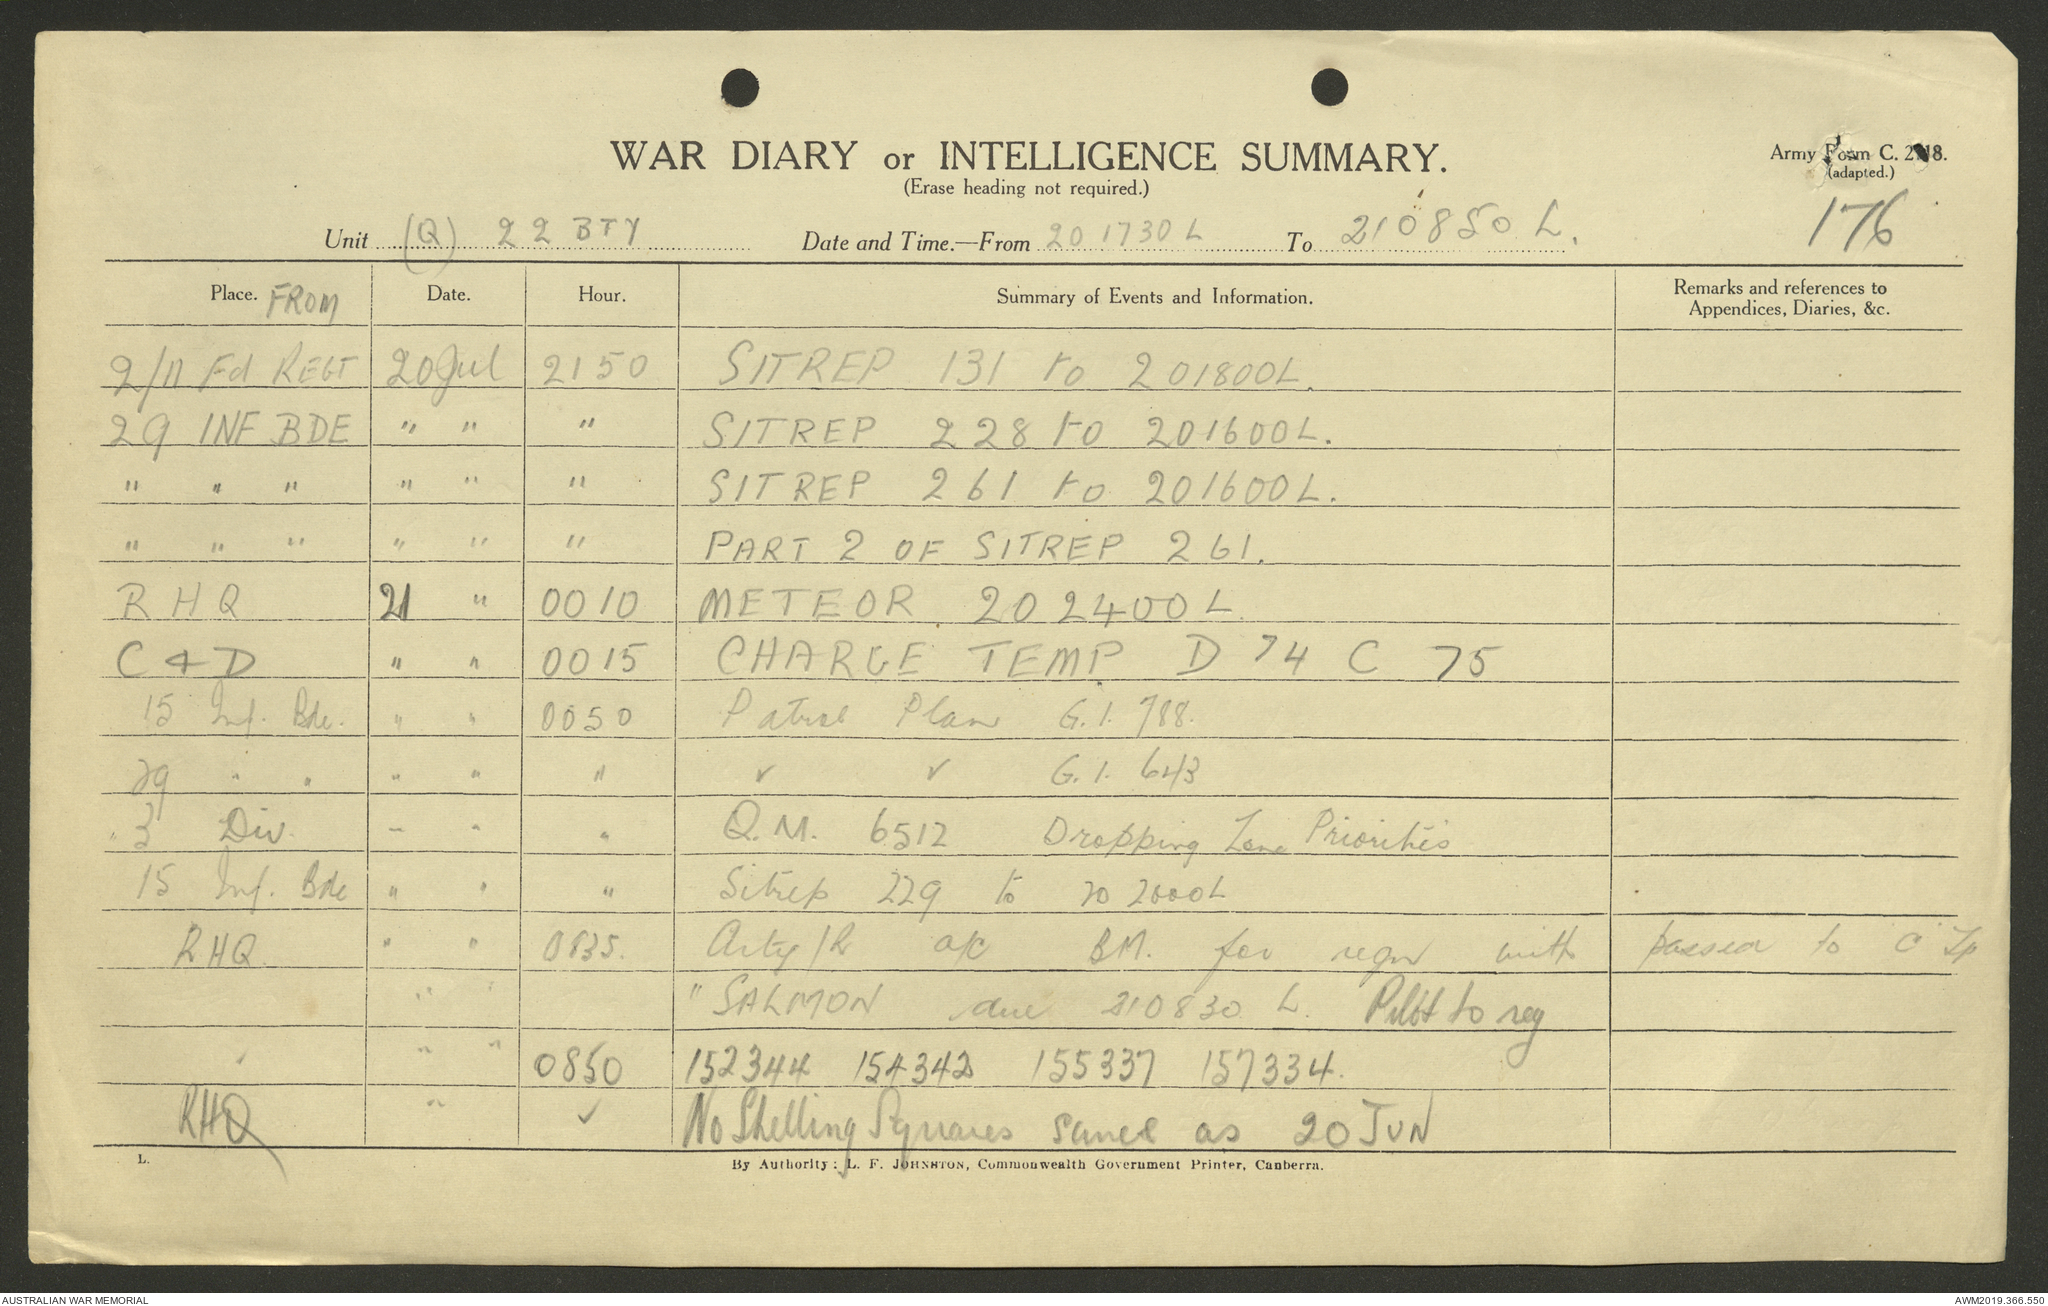 WAR DIARY or INTELLIGENCE SUMMARY.
(Erase heading not required.)
Army Form C. 2118.
(adapted.)
176
Unit (Q) 22 BTY Date and Time.—From 201730L To 210850L.
Place. FROM Date. Hour. Summary of Events and Information. Remarks and references to Appendices, Diaries, &c.
2/11 Fd REGT 20 Jul 2150 SITREP 131 to 201800L.
29 INF BDE " " " SITREP 228 to 201600L.
" " " " " " SITREP 261 to 201600L.
" " " " " " PART 2 OF SITREP 261.
RHQ 21 " 0010 METEOR 202400L.
C & D " " 0015 CHARGE TEMP D 74 C 75
15 Inf. Bde. " " 0050 Patrol Plan G.I. 788.
29 " " " " " " " G.I. 643
3 Div. " " " Q.M. 6512 Dropping Zone Priorities
15 Inf. Bde " " " Sitrep 229 to 202000L
RHQ " " 0835. Arty/R a/c BM. for regn with passed to C Tp
" " "SALMON due 210830 L. Pilot to reg
" " " 0850 152344 154342 155337 157334.
RHQ " " No Shelling Squares same as 20 JUN
L.
By Authority: L. F. JOHNSTON, Commonwealth Government Printer, Canberra.
AUSTRALIAN WAR MEMORIAL
AWM2019.366.550